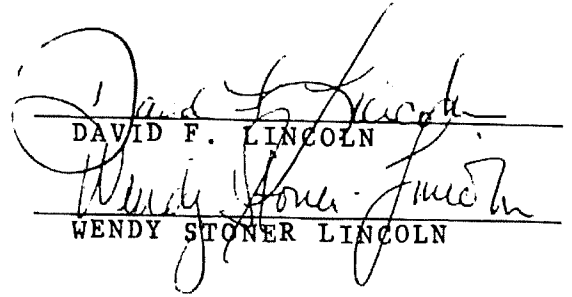 David F. Lincoln
DAVID F. LINCOLN
Wendy Stoner Lincoln
WENDY STONER LINCOLN